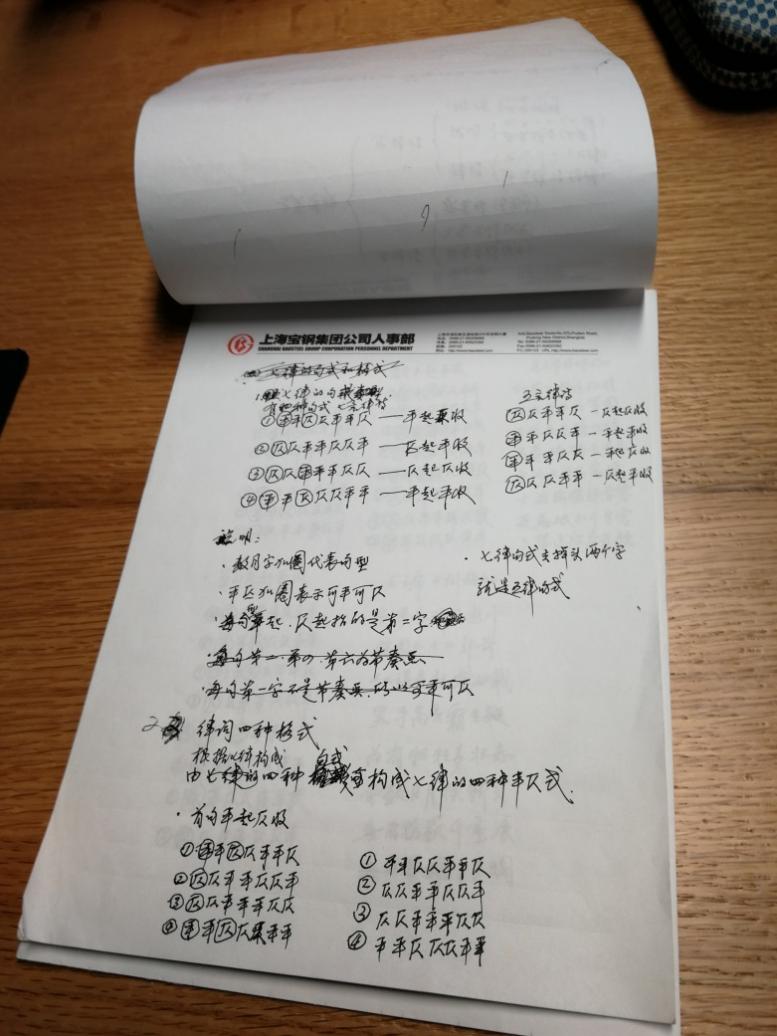 上海宝钢集团公司人事部
SHANGHAI BAOSTEEL GROUP CORPORATION PERSONNEL DEPARTMENT
七律的句式和格式
七律的句
有四种句式 七言律诗
五言律诗
①平平仄仄平平仄——平起仄收
仄仄平平仄—仄起仄收
②仄仄平平仄仄平——仄起平收
平平仄仄平—平起平收
③仄仄平平平仄仄——仄起仄收
平平平仄仄—平起仄收
④平平仄仄仄平平——平起平收
仄仄仄平平—仄起平收
说明:
·数目字加圈代表句型
·七律句式去掉头两个字
就是五律句式
·平仄加圈表示可平可仄
·每句平起、仄起指的是第二字
·每句第二、第四、第六为节奏点
·每句第一字不是节奏点,所以可平可仄
2 律词四种格式
根据以律构成 句式
由七律的四种 构成七律的四种平仄式.
·首句平起仄收
①平平仄仄平平仄
①平平仄仄平平仄
②仄仄平平仄仄平
②仄仄平平仄仄平
③仄仄平平平仄仄
③仄仄平平平仄仄
④平平仄仄仄平平
④平平仄仄仄平平